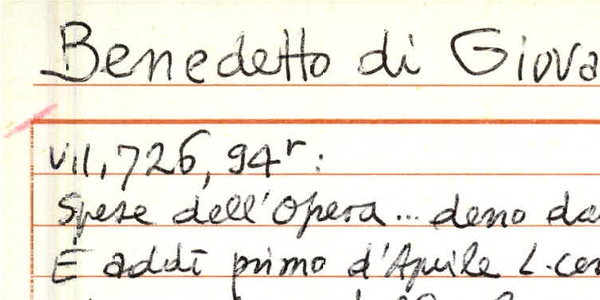 Benedetto di Giova
VII, 726, 94r:
Spese dell'Opera... deno da
E addì primo d'Aprile L. cen